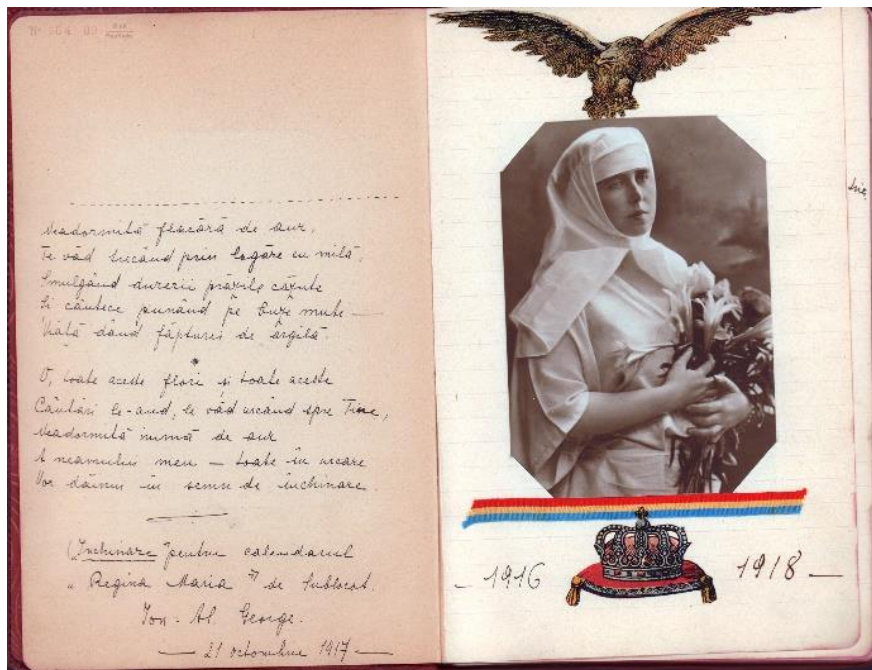 Neadormită flacără de aur,
Te văd trecând prin lagăre cu milă,
Smulgând durerii prăzile căzute
Și cântece punând pe buze mute —
Viață dând făpturii de argilă.
O, toate aceste flori și toate aceste
Cântări le-aud, le văd urcând spre Tine,
Neadormită inimă de aur
A neamului meu — toate în urcare
Vor dăinui în semn de închinare.
(Închinare pentru calendarul
„Regina Maria” de Sublocot.
Ion. Al. George.
— 21 octombrie 1917 —
— 1916
1918 —